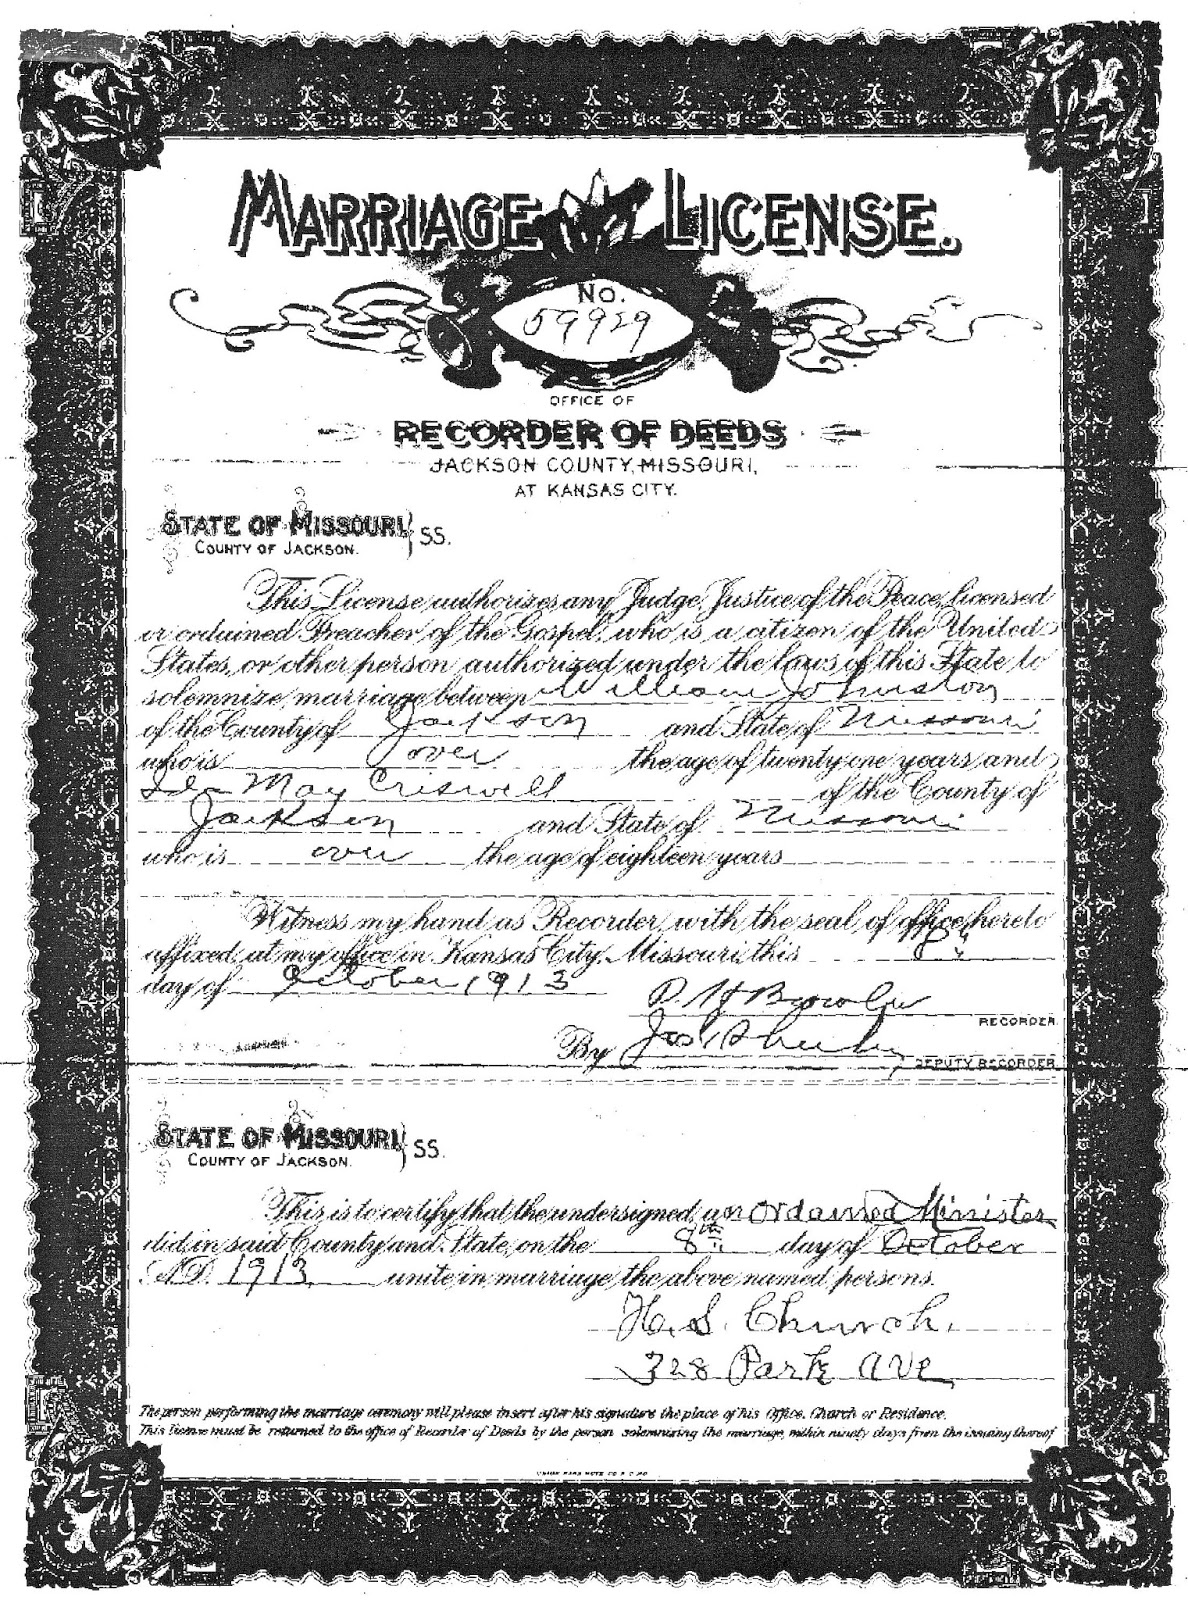 MARRIAGE LICENSE.
No.
59929
OFFICE OF
RECORDER OF DEEDS
JACKSON COUNTY, MISSOURI,
AT KANSAS CITY.
STATE OF MISSOURI, } SS.
COUNTY OF JACKSON.
This License authorizes any Judge, Justice of the Peace, Licensed
or ordained Preacher of the Gospel, who is a citizen of the United
States, or other person authorized under the laws of this State to
solemnize marriage between William Johnston
of the County of Jackson and State of Missouri
who is over the age of twenty one years and
Ida May Criswell of the County of
Jackson and State of Missouri
who is over the age of eighteen years
Witness my hand as Recorder, with the seal of office hereto
affixed, at my office in Kansas City, Missouri, this 8"
day of October 1913
RECORDER.
By Jos
DEPUTY RECORDER.
STATE OF MISSOURI, } SS.
COUNTY OF JACKSON.
This is to certify that the undersigned, an Ordained Minister
did in said County and State, on the 8th day of October
A.D. 1913 unite in marriage the above named persons.
H. S. Church.
328 Park Ave
The person performing the marriage ceremony will please insert after his signature the place of his Office, Church or Residence.
This license must be returned to the office of Recorder of Deeds by the person solemnizing the marriage, within ninety days from the issuing thereof